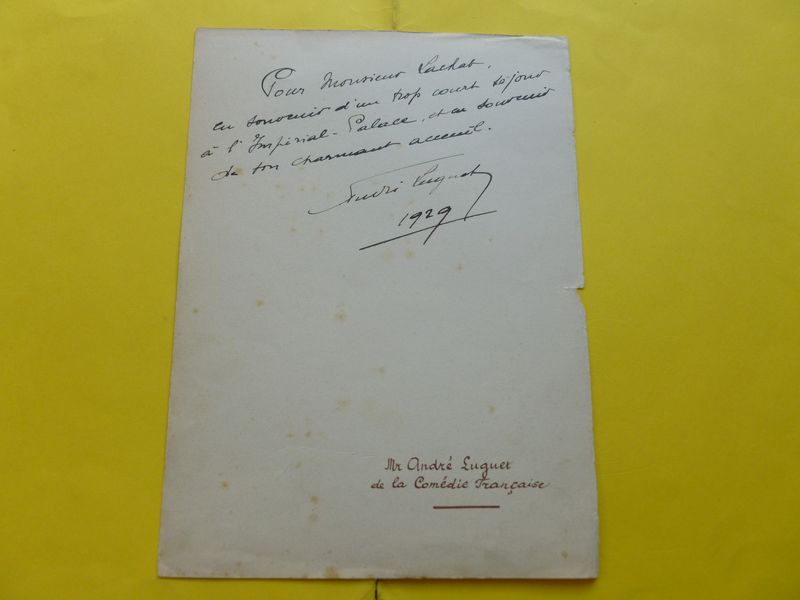 Pour Monsieur Lachat,
en souvenir d'un trop court séjour
à l'Impérial-Palace, et en souvenir
de son charmant accueil.
André Luguet
1929
Mr André Luguet
de la Comédie Française